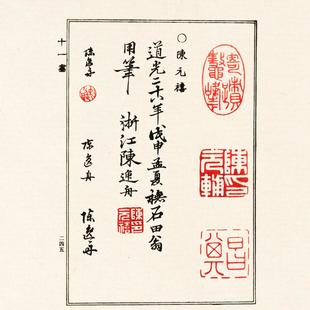 ○陳元禧
道光二十八年戊申孟夏橅石田翁
用筆 浙江陳逸舟
陳逸舟
陳逸舟
陳逸舟
十一畫
二四五